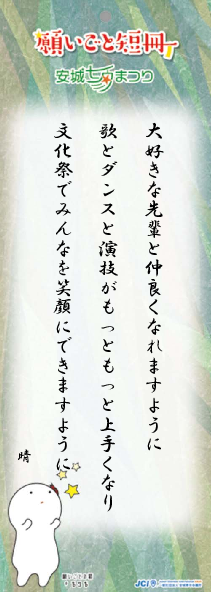 願いごと短冊
安城七夕まつり
大好きな先輩と仲良くなれますように
歌とダンスと演技がもっともっと上手くなり
文化祭でみんなを笑顔にできますように
晴
JCI